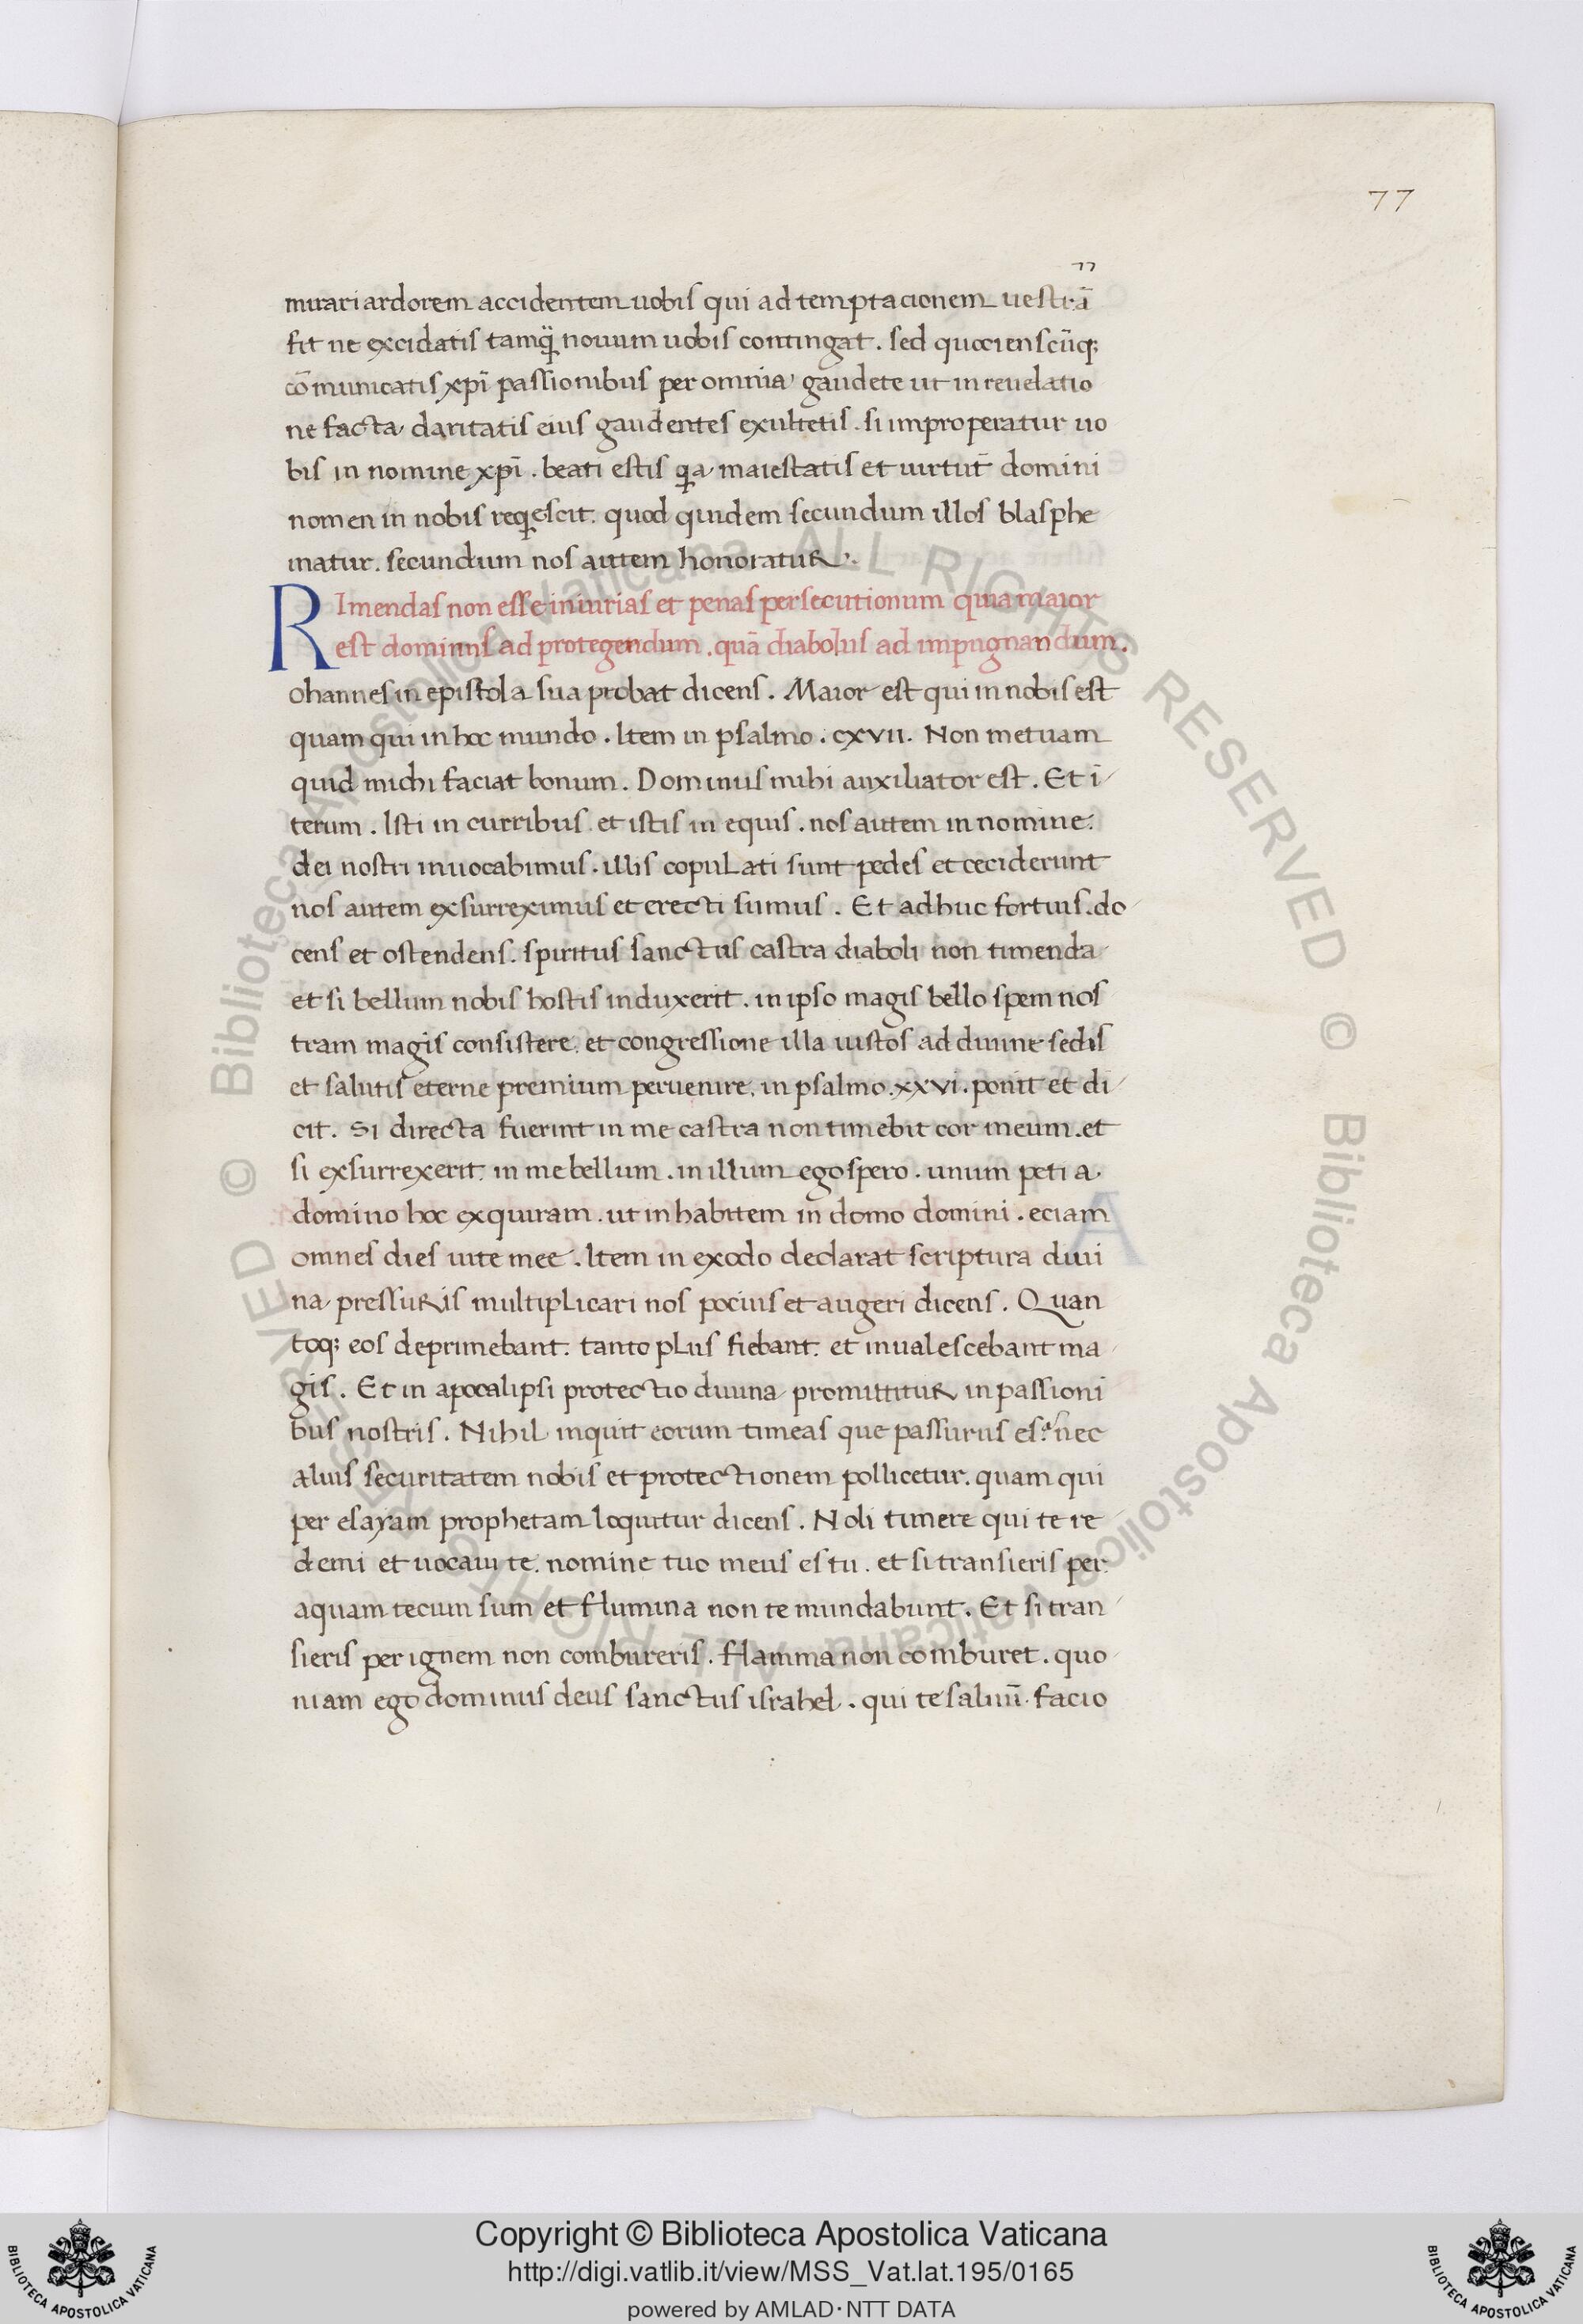 77
77
mirari ardorem accidentem uobis qui ad temptacionem uestrā
fit ne excidatis tamq̄ nouum uobis contingat. sed quocienscūq;
cōmunicatis xpī passionibus per omnia gaudete ut in reuelatio
ne facta claritatis eius gaudentes exultetis. si improperatur uo
bis in nomine xpī. beati estis qia maiestatis et uirtut̄ domini
nomen in nobis reqiescit. quod quidem secundum illos blasphe
matur. secundum nos autem honoratur.
RImendas non esse iniurias et penas persecutionum quia maior
est dominus ad protegendum. quā diabolus ad impugnandum.
ohannes in epistola sua probat dicens. Maior est qui in nobis est
quam qui in hoc mundo. Item in psalmo. cxvii. Non metuam
quid michi faciat bonum. Dominus mihi auxiliator est. Et ī
terum. Isti in curribus et istis in equis. nos autem in nomine
dei nostri inuocabimus. illis copulati sunt pedes et ceciderunt
nos autem exsurreximus et erecti sumus. Et adhuc fortius. do
cens et ostendens. spiritus sanctus castra diaboli non timenda
et si bellum nobis hostis induxerit. in ipso magis bello spem nos
tram magis consistere. et congressione illa iustos ad diuine sedis
et salutis eterne premium peruenire. in psalmo. xxvi. ponit et di
cit. Si directa fuerint in me castra non timebit cor meum. et
si exsurrexerit in me bellum. in illum ego spero. unum peti a.
domino hoc exquiram. ut inhabitem in domo domini. eciam
omnes dies uite mee. Item in exodo declarat scriptura diui
na pressuris multiplicari nos pocius et augeri dicens. Quan
toq; eos deprimebant. tanto plus fiebant. et inualescebant ma
gis. Et in apocalipsi protectio diuina promittitur in passioni
bus nostris. Nihil inquit eorum timeas que passurus es. nec
alius securitatem nobis et protectionem pollicetur. quam qui
per esayam prophetam loquitur dicens. Noli timere qui te re
demi et uocaui te. nomine tuo meus es tu. et si transieris per
aquam tecum sum et flumina non te mundabunt. Et si tran
sieris per ignem non combureris. flamma non comburet. quo
niam ego dominus deus sanctus israhel. qui te saluū facio
Copyright © Biblioteca Apostolica Vaticana
http://digi.vatlib.it/view/MSS_Vat.lat.195/0165
powered by AMLAD·NTT DATA